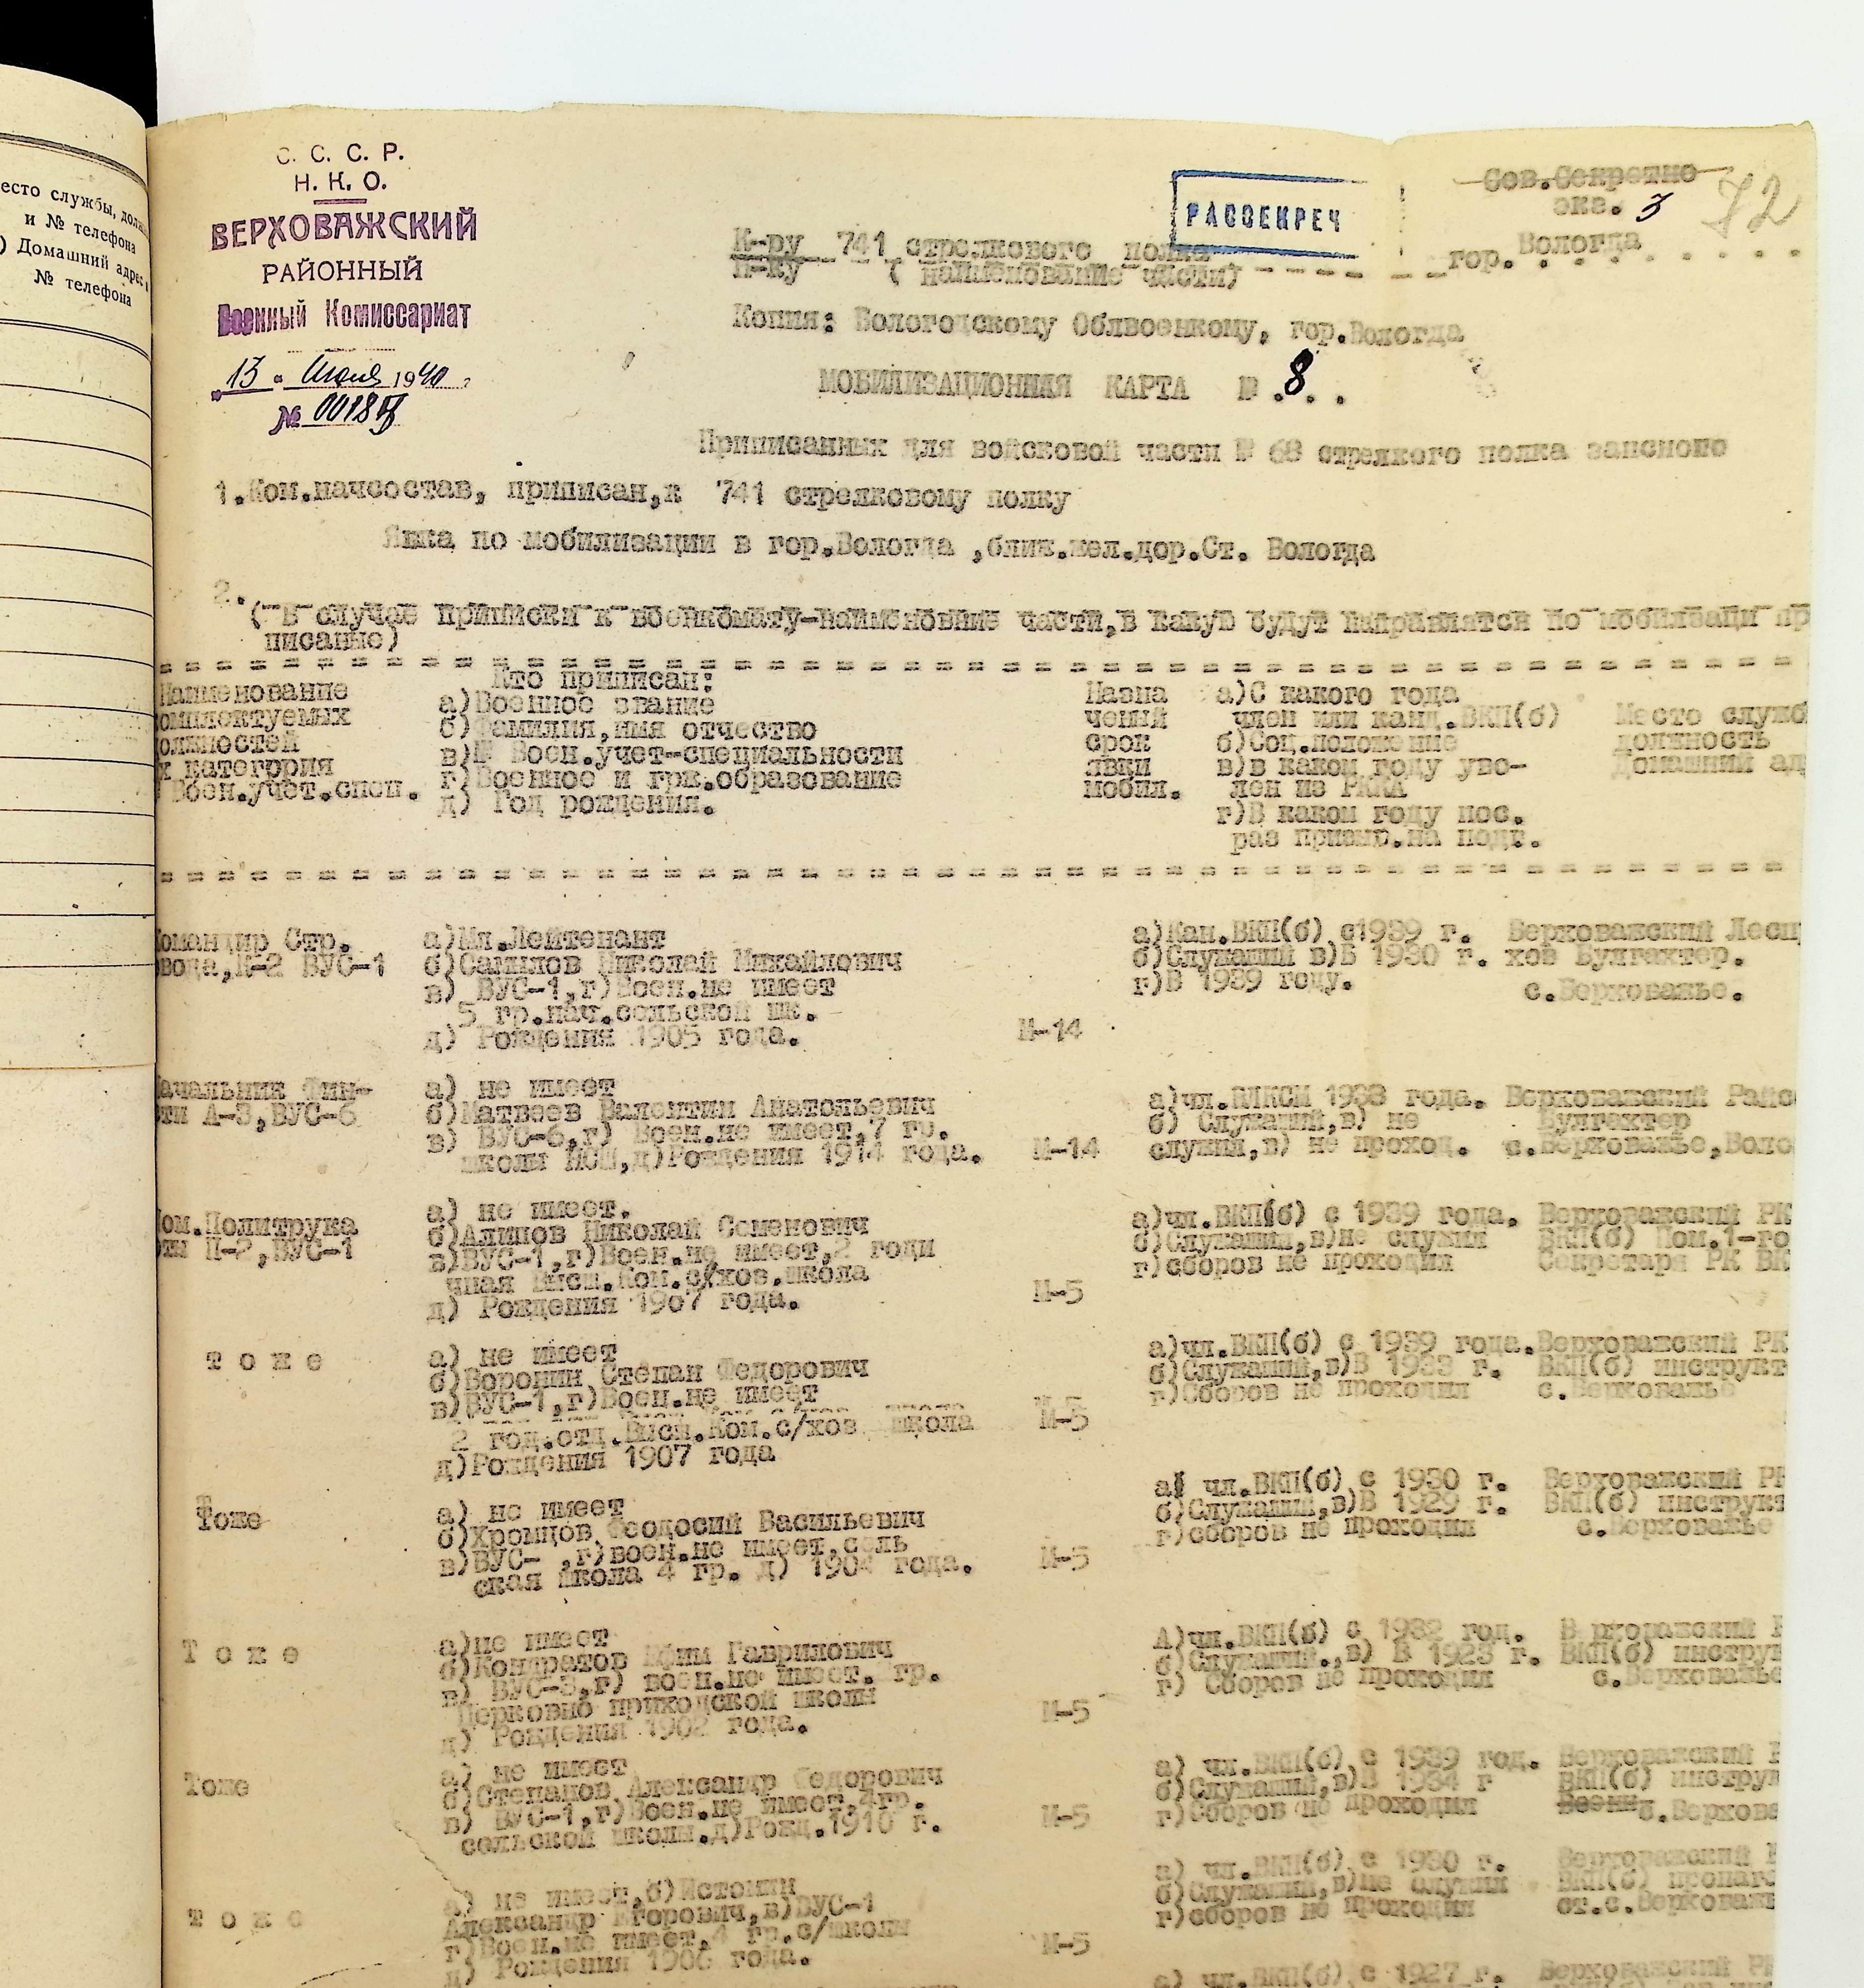 есто службы, долж
и № телефона
) Домашний адрес и
№ телефона
С. С. С. Р.
Н. К. О.
ВЕРХОВАЖСКИЙ
РАЙОННЫЙ
Военный Комиссариат
13 " Июня 1940 г
№ 0018
РАССЕКРЕЧ
Сов.Секретно
экз. 3
72
К-ру 741 стрелкового полка
Н-ку ( наименование части)
гор. Вологда
Копия: Вологодскому Облвоенкому, гор.Вологда
МОБИЛИЗАЦИОННАЯ КАРТА № .8. .
Приписанных для войсковой части № 68 стрелкого полка запсного
1.Ком.начсостав, приписан,к 741 стрелковому полку
Явка по мобилизации в гор.Вологда ,ближ.жел.дор.Ст. Вологда
2.
( В случае приписки к военкомату-наименовние части,в какую будут направлятся по мобилзаци пр
писаные)
Наименование
омплектуемых
олжностей
х категоррия
Воен.учет.спец.
Кто приписан:
а)Военное звание
б)Фамилия,имя отчество
в)№ Воен.учет-специальности
г)Военное и грж.образование
д) Год рождения.
Назна
ченый
срок
явки
мобил.
а)С какого года
член или канд.ВКП(б)
б)Соц.положение
в)в каком году уво-
лен из РККА
г)В каком году пос.
раз призыв.на подг.
Место служб
должность
Домашний ад
омандир Стр.
вода,К-2 ВУС-1
а)Мл.Лейтенант
б)Самылов Николай Михайлович
в) ВУС-1,г)Воен.не имеет
5 гр.нач.сельской шк.
д) Рождения 1905 года.
М-14
а)Кан.ВКП(б) с1939 г.
б)Служащий в)В 1930 г.
г)В 1939 году.
Верховажский Лесп
хоз Булгахтер.
с.Верховажье.
ачальник Фин-
сти А-3,ВУС-6
а) не имеет
б)Матвеев Валентин Анатольевич
в) ВУС-6,г) Воен.не имеет,7 гр.
школы НСШ,д)Рождения 1914 года.
М-14
а)чл.ВЛКСМ 1933 года.
б) Служащий,в) не
служил,в) не проход.
Верховажский Райс
Булгахтер
с.Верховажье,Воло
ом.Политрука
ты П-2,ВУС-1
а) не имеет.
б)Алипов Николай Семенович
в)ВУС-1,г)Воен.не имеет,2 годи
чная Высш.Ком.с/хоз.школа
д) Рождения 1907 года.
М-5
а)чл.ВКП(б) с 1939 года.
б)Служащий,в)не служил
г)сборов не проходил
Верховажский РК
ВКП(б) Пом.1-го
Секретаря РК ВК
т о ж е
а) не имеет
б)Воронин Степан Федорович
в)ВУС-1,г)Воен.не имеет
2 год.отд.Высш.Ком.с/хоз школа
д)Рождения 1907 года
М-5
а)чл.ВКП(б) с 1939 года.
б)Служащий,в)В 1933 г.
г)Сборов не проходил
Верховажский РК
ВКП(б) инструкт
с.Верховажье
Тоже
а) не имеет
б)Хромцов Феодосий Васильевич
в)ВУС- ,г)воен.не имеет,сель
ская школа 4 гр. д) 1904 года.
М-5
а) чл.ВКП(б) с 1930 г.
б)Служащий,в)В 1929 г.
г)сборов не проходил
Верховажский РК
ВКП(б) инструкт
с.Верховажье
Т о ж е
а)не имеет
б)Кондратов Ефим Гаврилович
в) ВУС-3,г) воен.не имеет. гр.
Церковно приходской школы
д) Рождения 1902 года.
М-5
А)чл.ВКП(б) с 1932 год.
б)Служащий.,в) В 1923 г.
г) Сборов не проходил
В рховажский Р
ВКП(б) инструк
с.Верховажье
Тоже
а) не имеет
б)Степанов Александр Федорович
в) ВУС-1,г)Воен.не имеет,4гр.
сельской школы.д)Рожд.1910 г.
М-5
а) чл.ВКП(б) с 1939 год.
б)Служащий,в)В 1934 г
г)Сборов не проходил
Верховажский Р
ВКП(б) инструк
с.Верхова
т о ж е
а) не имеет,б)Истомин
Александр Егорович,в)ВУС-1
г)Воен.не имеет,4 гр.с/школы
д) Рождения 1906 года.
М-5
а) чл.ВКП(б) с 1930 г.
б)Служащий,в)не служил
г)сборов не проходил
Верховажский Р
ВКП(б) пропаг
ст.с.Верховаж
а) чл.ВКП(б) с 1927 г.
Верховажский РК